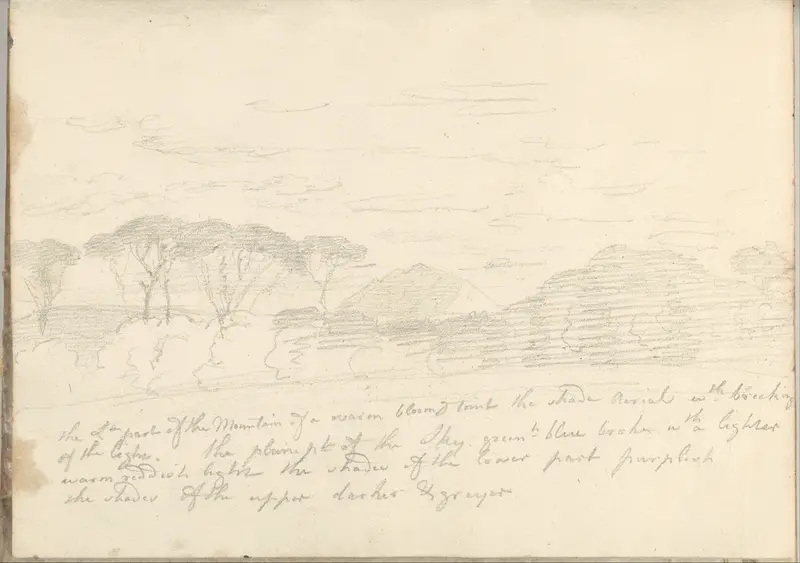 the Lt part of the Mountain of a warm bloomd tint the shade Aerial wth breaking
of the light. the plain pt of the Sky greenh blue broke wth a lighter
warm reddish light the shades of the lower part purplish
the shades of the upper darker & greyer